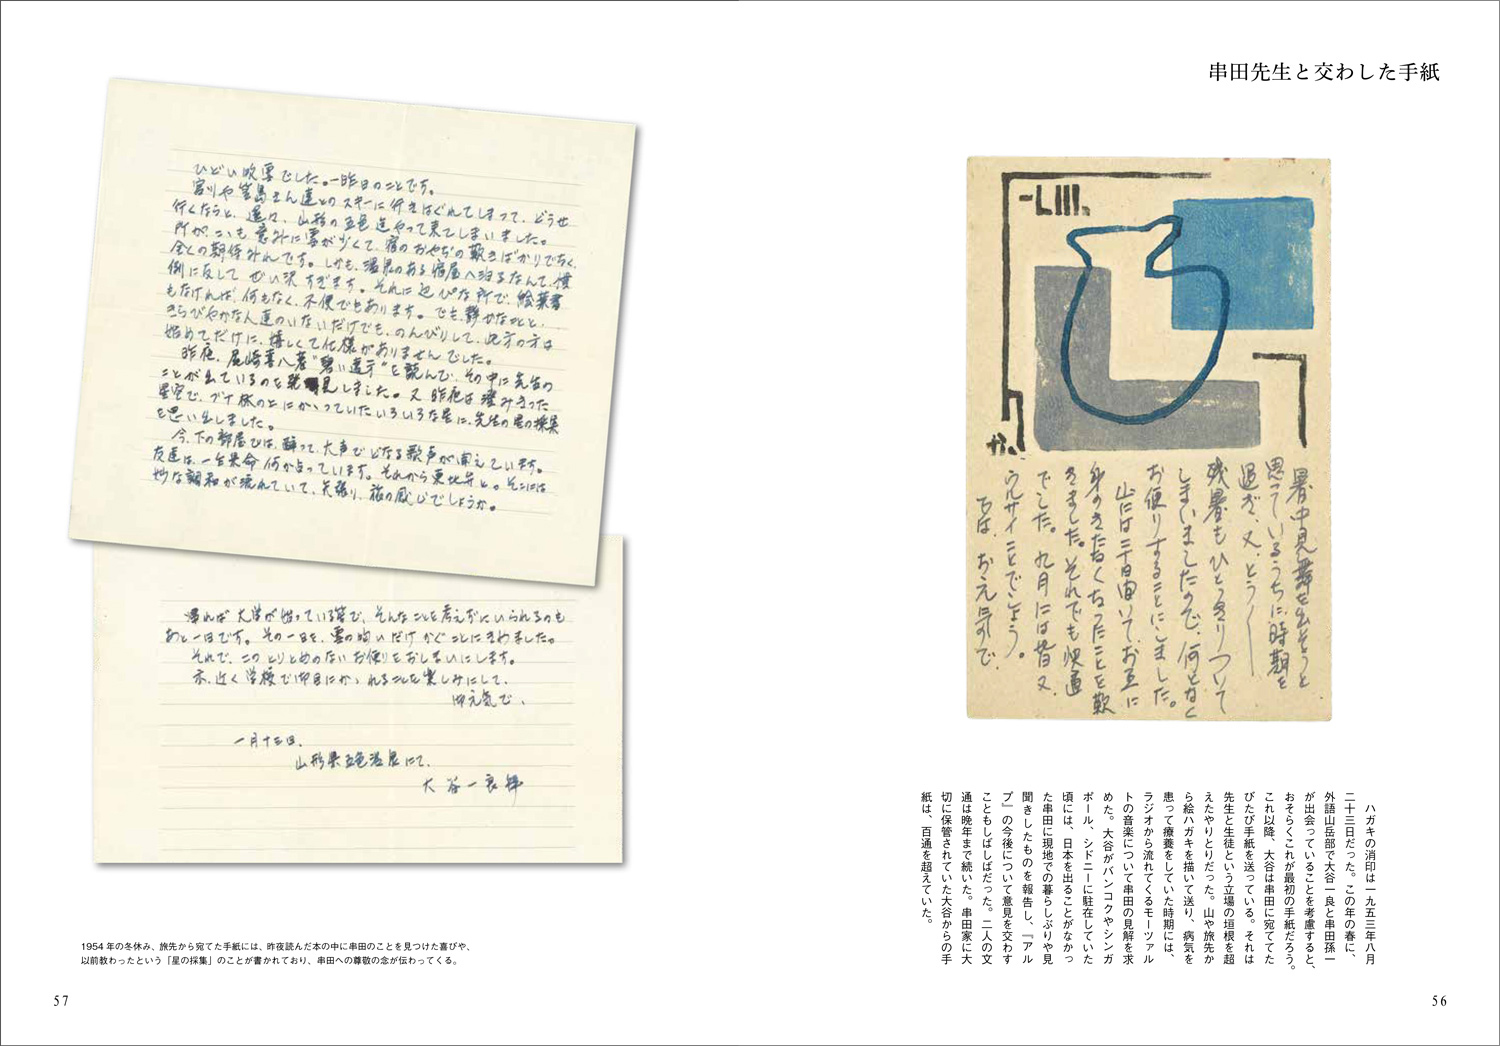 串田先生と交わした手紙
暑中見舞を出そうと
思っているうちに時期を
過ぎ、又、とう〱
残暑もひときりついて
しまいましたので、何となく
お便りすることにしました。
山には二十日間いて、お互に
身のきたなくなったことを歎
きました。それでも快適
でした。九月には皆又、
ウルサイことでしょう。
では、お元気で、
ハガキの消印は一九五三年八月
二十三日だった。この年の春に、
外語山岳部で大谷一良と串田孫一
が出会っていることを考慮すると、
おそらくこれが最初の手紙だろう。
これ以降、大谷は串田に宛ててた
びたび手紙を送っている。それは
先生と生徒という立場の垣根を超
えたやりとりだった。山や旅先か
ら絵ハガキを描いて送り、病気を
患って療養をしていた時期には、
ラジオから流れてくるモーツァル
トの音楽について串田の見解を求
めた。大谷がバンコクやシンガ
ポール、シドニーに駐在していた
頃には、日本を出ることがなかっ
た串田に現地での暮らしぶりや見
聞きしたものを報告し、『アル
プ』の今後について意見を交わす
こともしばしばだった。二人の文
通は晩年まで続いた。串田家に大
切に保管されていた大谷からの手
紙は、百通を超えていた。
56
ひどい吹雪でした。一昨日のことです。
宮川や笠島さん達とのスキーに行きはぐれてしまって、どうせ
行くならと、遥々、山形の五色迄やって来てしまいました。
所が、こゝも意外に雪が少くて、宿のおやぢの歎きばかりでなく、
全くの期待外れです。しかも、温泉のある宿屋へ泊るなんて、慣
例に反してぜい沢すぎます。それに辺ぴな所で、絵葉書
もなければ、何もなく、不便でもあります。でも、静かなことゝ、
きらびやかな人達のいないだけでも、のんびりして、此方の方は
始めてだけに、嬉しくて仕様がありませんでした。
昨夜、尾崎喜八著“碧い遠方”を読んで、その中に先生の
ことが出ているのを発見しました。又、昨夜は澄みきった
星空で、ブナ林の上にかゝっていたいろいろな星に、先生の星の採集
を思い出しました。
今、下の部屋では、酔って、大声でどなる歌声が聞えています。
友達は、一生懸命何か占っています。それから東北弁と。そこには
妙な調和が流れていて、矢張り、旅の感じでしょうか。
帰れば大学が始っている筈で、そんなことを考えずにいられるのも
あと一日です。その一日を、雪の匂いだけかぐことにきめました。
それで、このとりとめのないお便りをおしまいにします。
亦、近く学校で御目にかゝれることを楽しみにして、
御元気で、
一月十三日、
山形県五色温泉にて、
大谷一良拝
1954年の冬休み、旅先から宛てた手紙には、昨夜読んだ本の中に串田のことを見つけた喜びや、
以前教わったという「星の採集」のことが書かれており、串田への尊敬の念が伝わってくる。
57